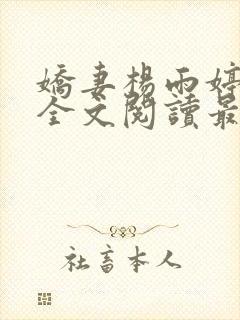 嬌妻楊雨婷
全文閱讀最
社畜本人